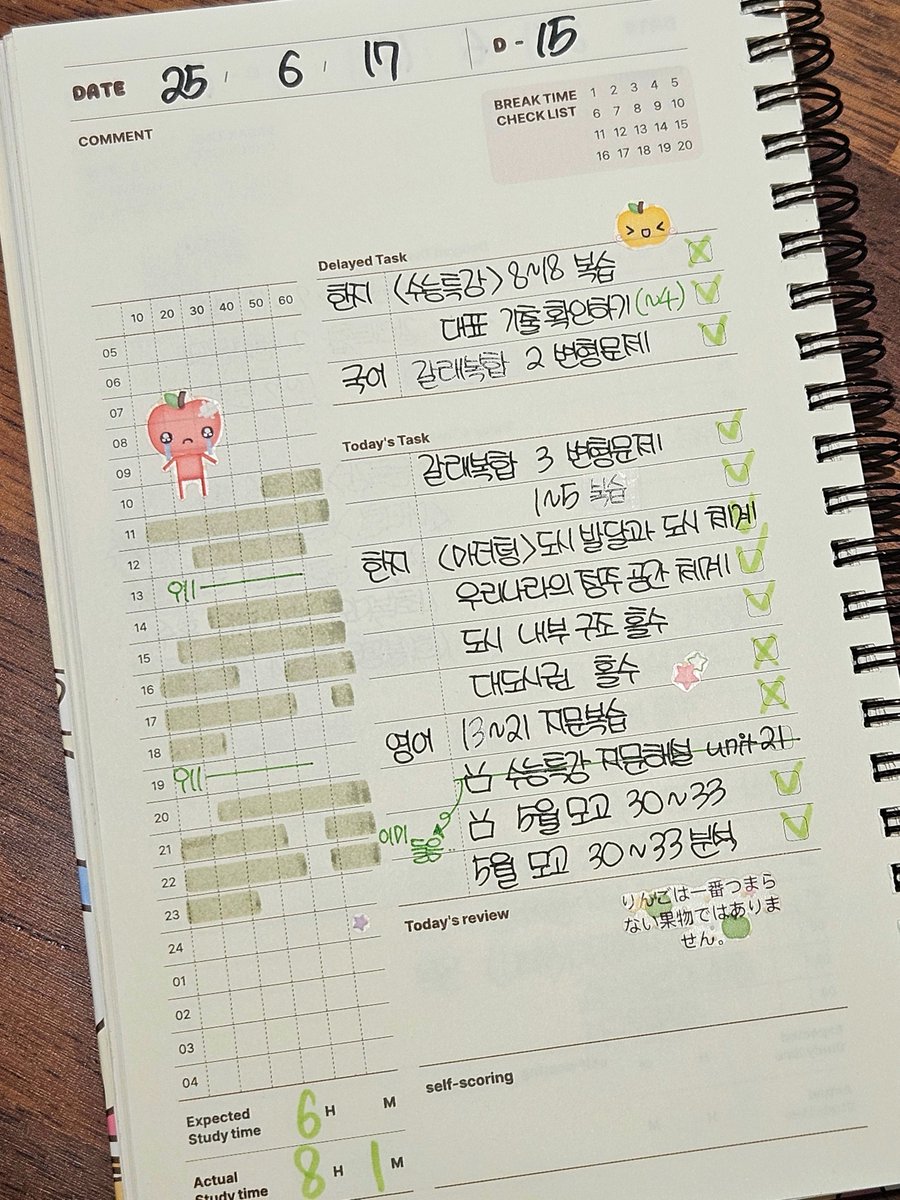 DATE 25 / 6 / 17 D - 15
COMMENT
BREAK TIME CHECK LIST
1 2 3 4 5
6 7 8 9 10
11 12 13 14 15
16 17 18 19 20
Delayed Task
한지 <수능특강> 8~18 복습
대표 기출 확인하기 (~4)
국어 갈래복합 2 변형문제
Today's Task
갈래복합 3 변형문제
1~5 복습
한지 <마더텅> 도시 발달과 도시 체계
우리나라의 정주 공간 체계
도시 내부 구조 홀수
대도시권 홀수
영어 13~21 지문복습
수능특강 지문해설 unit 21
5월 모고 30~33
이미
5월 모고 30~33 분석
10 20 30 40 50 60
05
06
07
08
09
10
11
12
13
14
15
16
17
18
19
20
21
22
23
24
01
02
03
04
Today's review
りんごは一番つまら
ない果物ではありま
せん。
self-scoring
Expected Study time 6 H M
Actual Study time 8 H 1 M